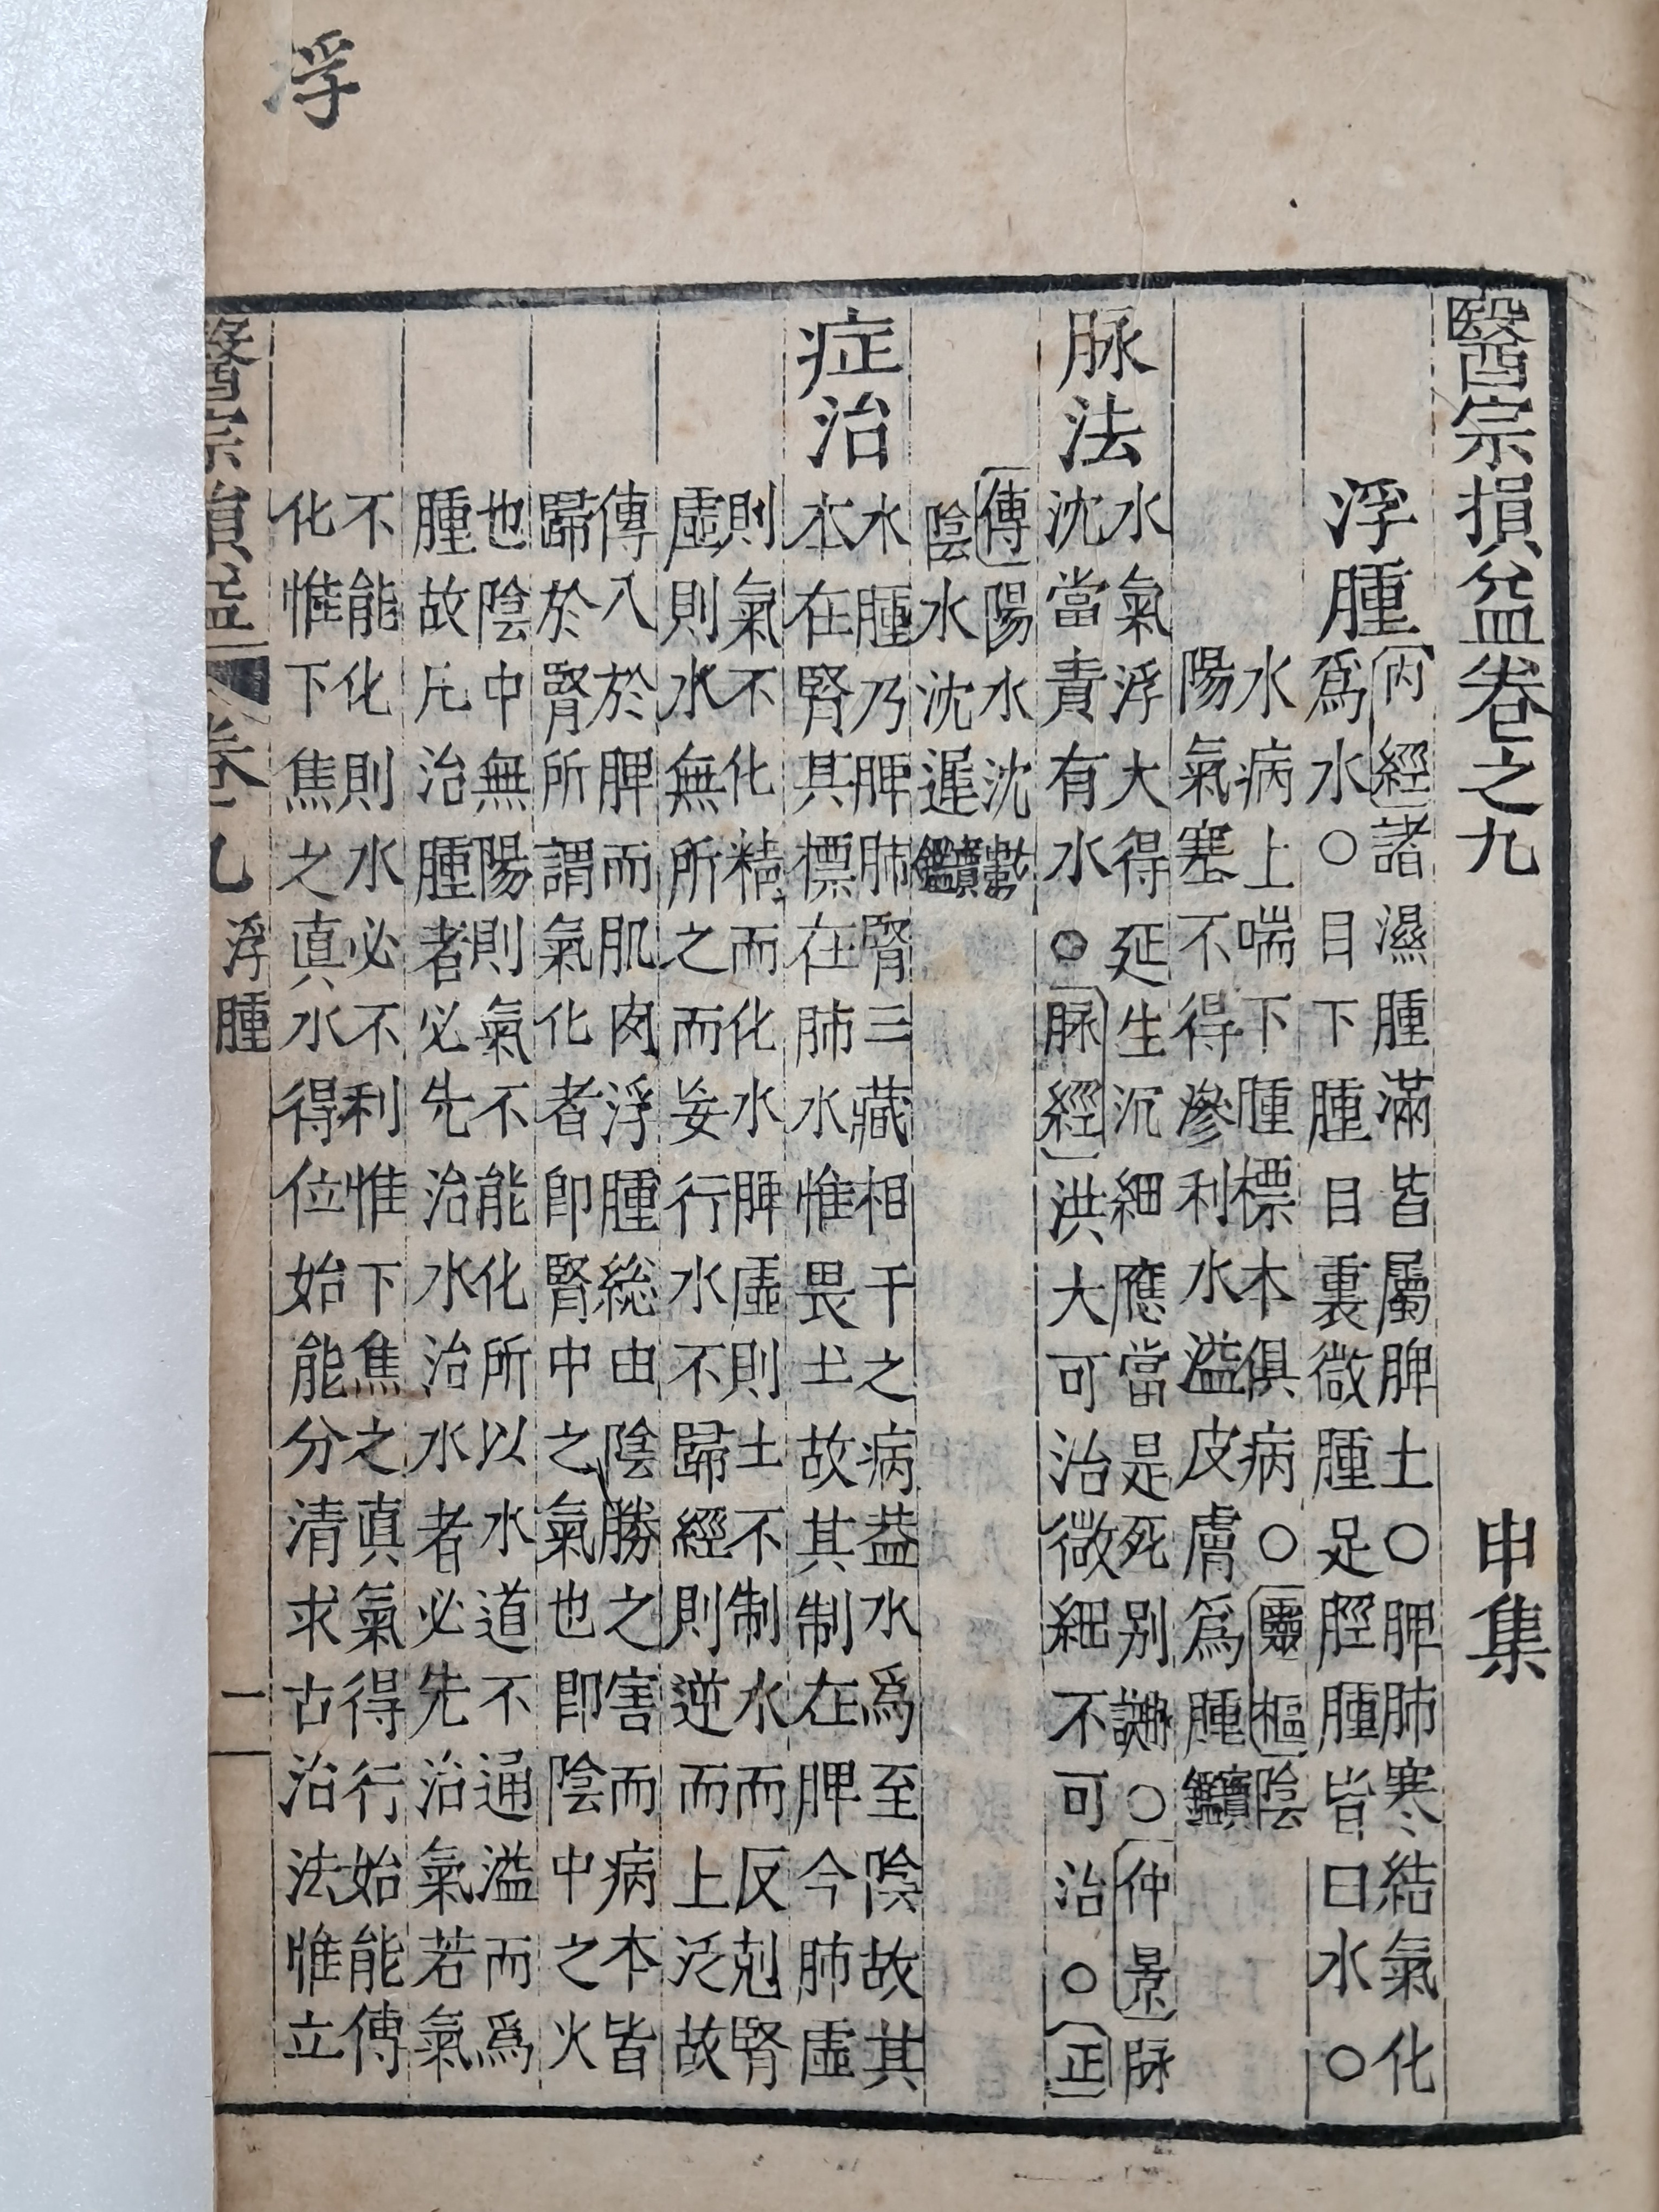 浮
醫宗損益卷之九 申集
浮腫
內經諸濕腫滿皆屬脾土○脾肺寒結氣化
爲水○目下腫目裏微腫足脛腫皆曰水○
水病上喘下腫標本俱病○靈樞陰
陽氣塞不得滲利水溢皮膚爲腫寶鑑
脉法
水氣浮大得延生沉細應當是死別脉訣○仲景脉
沈當責有水○脉經洪大可治微細不可治○正
傳陽水沈數
陰水沈遲寶鑑
症治
水腫乃脾肺腎三藏相干之病益水爲至陰故其
本在腎其標在肺水惟畏土故其制在脾今肺虛
則氣不化精而化水脾虛則土不制水而反剋腎
虛則水無所之而妄行水不歸經則逆而上泛故
傳入於脾而肌肉浮腫総由陰勝之害而病本皆
歸於腎所謂氣化者即腎中之氣也即陰中之火
也陰中無陽則氣不能化所以水道不通溢而爲
腫故凡治腫者必先治水治水者必先治氣若氣
不能化則水必不利惟下焦之真氣得行始能傳
化惟下焦之真水得位始能分清求古治法惟立
醫宗損益 卷九 浮腫 一